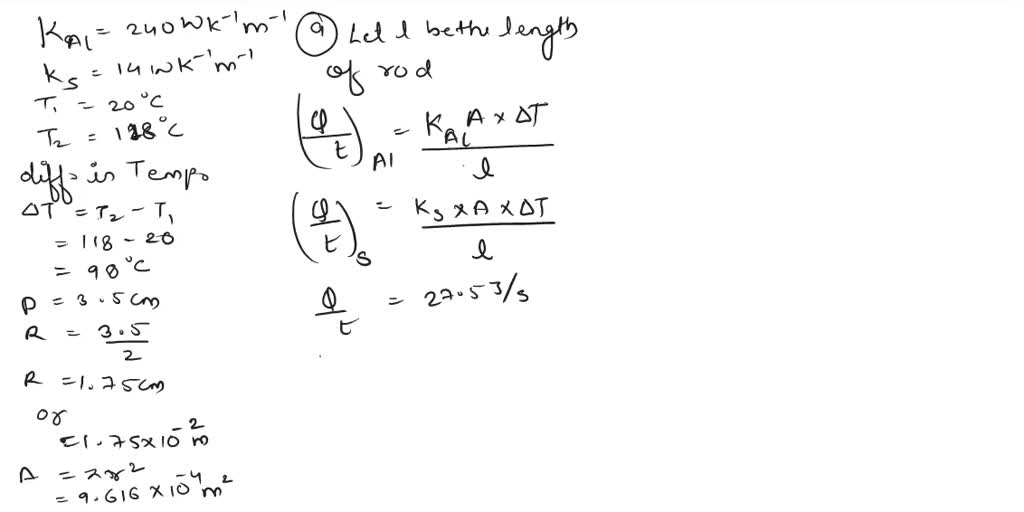 K_Al = 240 WK⁻¹m⁻¹
K_S = 14 WK⁻¹m⁻¹
T₁ = 20°C
T₂ = 118°C
diff. in Temp.
ΔT = T₂ - T₁
= 118 - 20
= 98°C
D = 3.5 cm
R = 3.5/2
R = 1.75 cm
or
= 1.75 × 10⁻² m
A = πr²
= 9.616 × 10⁻⁴ m²
(a) Let l be the length
of rod
(Q/t)_Al = K_Al A × ΔT / l
(Q/t)_S = K_S × A × ΔT / l
Q/t = 27.5 J/s